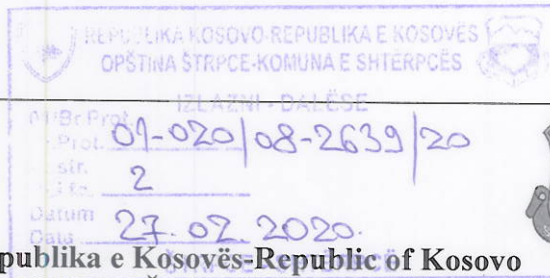 REPUBLIKA KOSOVO-REPUBLIKA E KOSOVËS
OPŠTINA ŠTRPCE-KOMUNA E SHTËRPCËS
IZLAZNI - DALËSE
Nr/Br.Prot.
Prot. 01-020/08-2639/20
str. 2
Datum
Data 27.02.2020.
publika e Kosovës-Republic of Kosovo